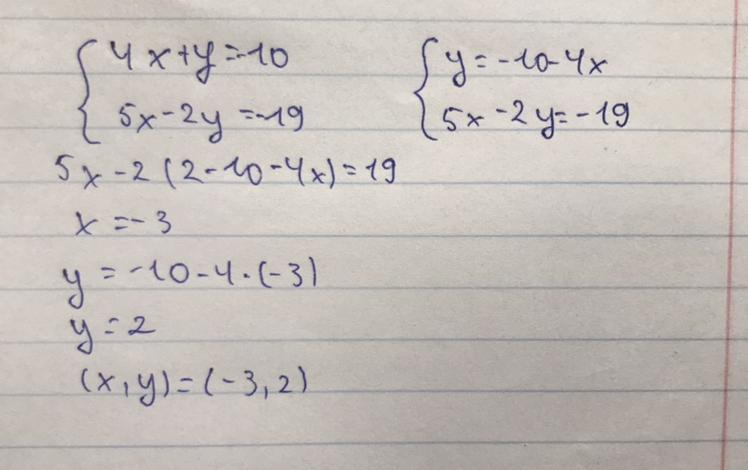 4x+y=-10
5x-2y=-19
y=-10-4x
5x-2y=-19
5x-2(2-10-4x)=19
x=-3
y=-10-4·(-3)
y=2
(x,y)=(-3,2)